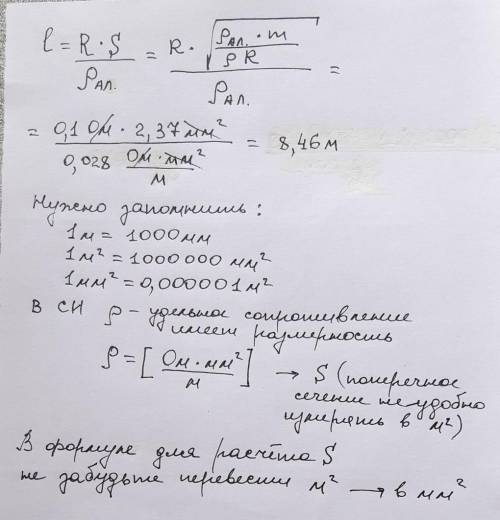 l = R · S / ρ ал. = R · √(ρ ал. · m / ρ R) / ρ ал. =
= 0,1 Ом · 2,37 мм² / 0,028 Ом · мм² / м = 8,46 м
Нужно запомнить :
1 м = 1000 мм
1 м² = 1000 000 мм²
1 мм² = 0,000001 м²
В СИ ρ – удельное сопротивление
имеет размерность
ρ = [ Ом · мм² / м ] → S (поперечное
сечение неудобно
измерять в м²)
В формуле для расчёта S
не забудьте перевести м² → в мм²